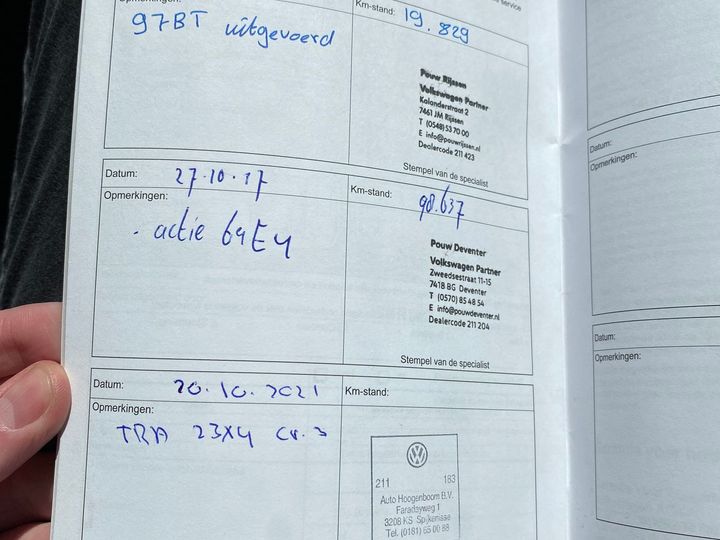 Opmerkingen:
97BT uitgevoerd
Km-stand: 19.829
service
Pouw Rijssen
Volkswagen Partner
Kalanderstraat 2
7461 JM Rijssen
T (0548) 53 70 00
E info@pouwrijssen.nl
Dealercode 211 423
Stempel van de specialist
Datum: 27.10.17
Km-stand: 98.637
Opmerkingen:
. actie 69E4
Pouw Deventer
Volkswagen Partner
Zweedsestraat 11-15
7418 BG Deventer
T (0570) 85 48 54
E info@pouwdeventer.nl
Dealercode 211 204
Stempel van de specialist
Datum: 20.10.2021
Km-stand:
Opmerkingen:
TRA 23X4 Cr. 3
211 183
Auto Hoogenboom B.V.
Faradayweg 1
3208 KS Spijkenisse
Tel. (0181) 65 00 88
Datum:
Opmerkingen:
Datum:
Opmerkingen: